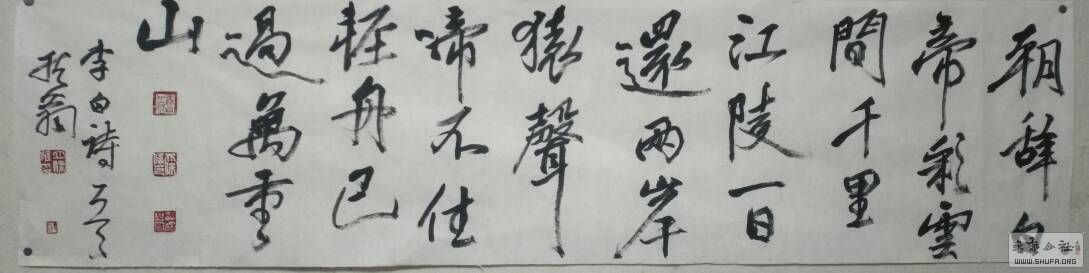 朝辞白
帝彩雲
間千里
江陵一日
還兩岸
猿聲
啼不住
輕舟已
過萬重
山
李白詩
於翁
WWW.SHUFA.ORG